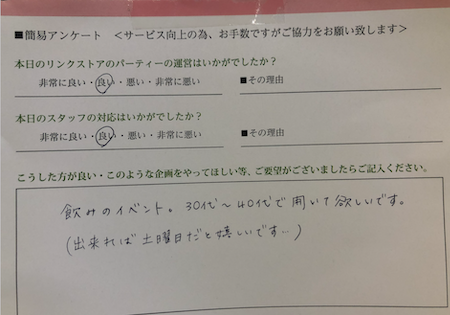 ■簡易アンケート ＜サービス向上の為、お手数ですがご協力をお願い致します＞
本日のリンクストアのパーティーの運営はいかがでしたか？
非常に良い・良い・悪い・非常に悪い ■その理由
本日のスタッフの対応はいかがでしたか？
非常に良い・良い・悪い・非常に悪い ■その理由
こうした方が良い・このような企画をやってほしい等、ご要望がございましたらご記入ください。
飲みのイベント。30代〜40代で開いて欲しいです。
(出来れば土曜日だと嬉しいです…)